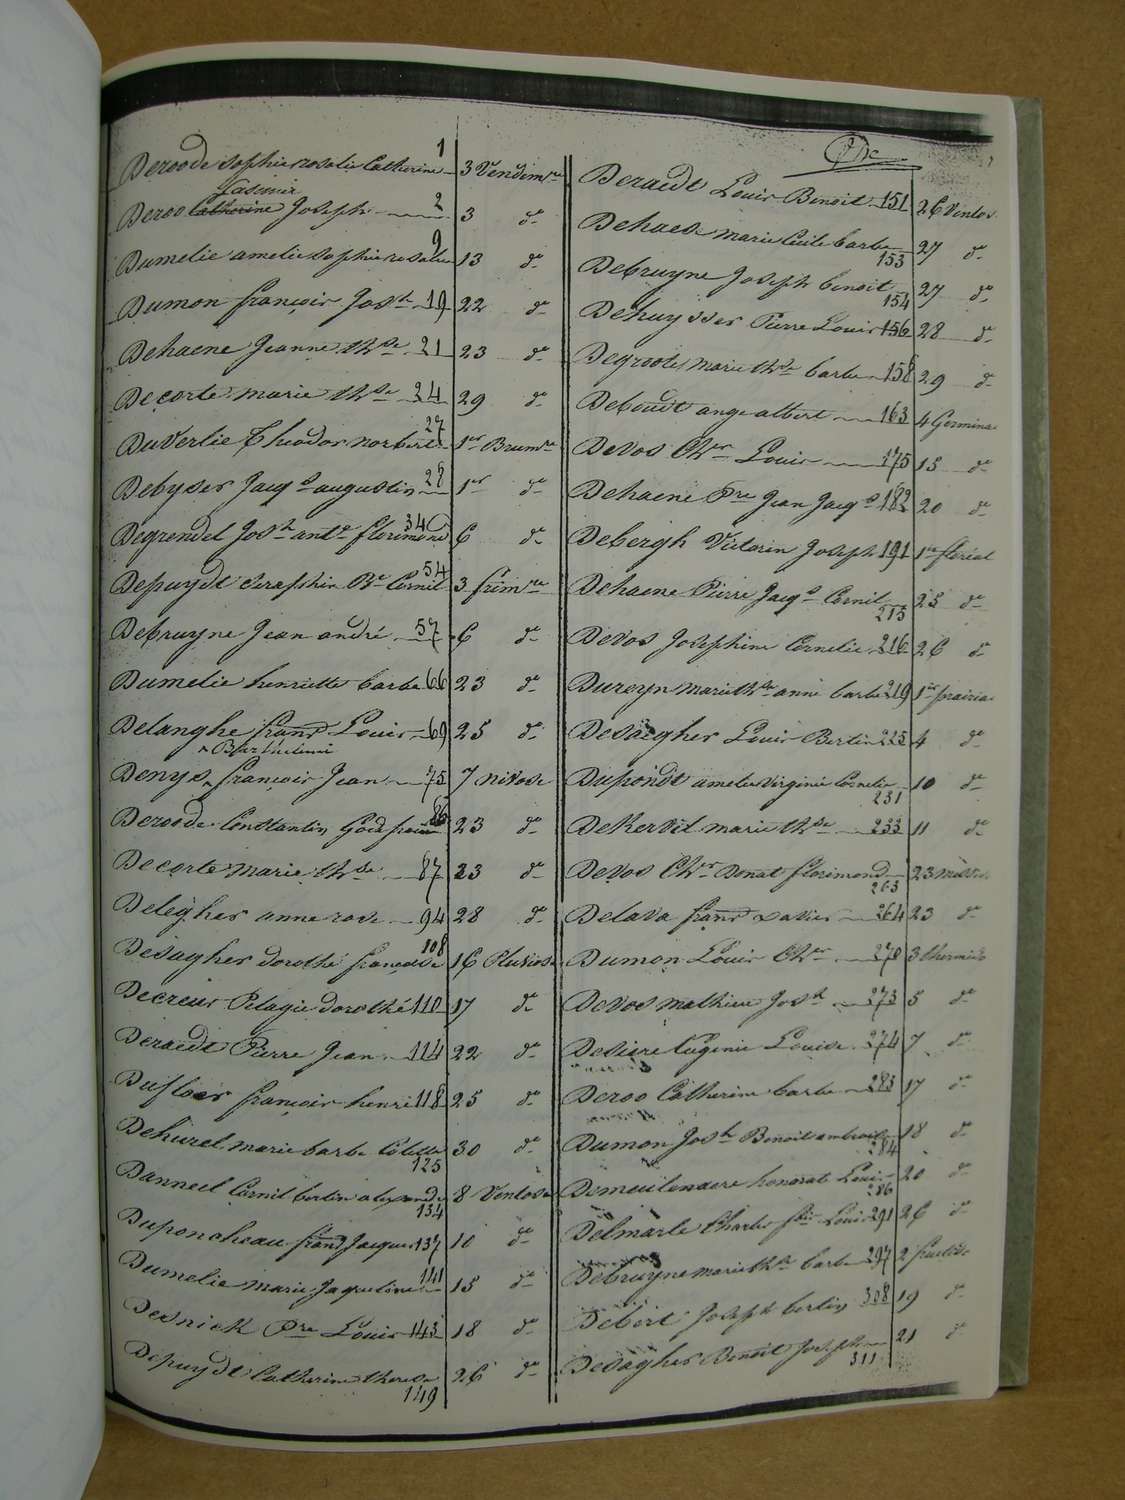 Deroode Sophie rosalie Catherine 1 3 Vendem.re
Casimir
Deroo Catherine Joseph 2 3 de
Dumelie amelie sophie rosalie 9 13 de
Dumon françois Jos.h 19 22 de
Dehaene Jeanne th.se 21 23 de
Decorte marie th.se 24 29 de
DuVerlie Theodor norbert 27 1er Brum.re
Debyser Jacq.s augustin 28 1er de
Degrendel Jos.h ant.e florimond 34 6 de
Depuydt Seraphin B.t Cornil 54 3 frim.re
Debruyne Jean andré 57 6 de
Dumelie henriette barbe 66 23 de
Delanghe franç Louis 69 25 de
Barthelemi
Denys françois Jean 75 7 nivose
Deroode Constantin God froid 86 23 de
Decorte marie th.se 87 23 de
Delegher anne rose 94 28 de
Desagher dorothé françoise 108 16 Pluviose
Decreus Pelagie dorothé 110 17 de
Deraedt Pierre Jean 114 22 de
Duflocr françois henri 118 25 de
Dehurel marie barbe Colette 125 30 de
Danneel Cornil bertin alexandre 134 8 Ventose
Duponcheau franç Jacques 137 10 de
Dumelie marie Jaqueline 141 15 de
Desnick P.re Louis 143 18 de
Depuydt Catherine therese 149 26 de
Deraedt Louis Benoit 151 26 Ventos
Dehaese marie Cicile barbe 153 27 de
Debruyne Joseph benoit 154 27 de
Dehuysser Pierre Louis 156 28 de
Degroote marie th.se barbe 158 29 de
Deboudt ange albert 163 4 Germina
Devos Ch.er Louis 175 15 de
Dehaene P.re Jean Jacq.s 182 20 de
Debergh Victorin Joseph 191 1er floréal
Dehaene Pierre Jacq.s Cornil 215 25 de
Devos Josephine Cornelie 216 26 de
Dureyn marie th.se anne barbe 219 1er prairia
Desaegher Louis Bertin 225 4 de
Dupondt amelie virginie Cornelie 231 10 de
Dekervil marie th.se 233 11 de
Devos Ch.er Donat florimond 263 23 messid
Delava franç xavier 264 23 de
Dumon Louis Ch.er 270 3 thermido
Devos mathieu Jos.h 273 5 de
Desiere Eugenie Louise 274 7 de
Deroo Catherine barbe 283 17 de
Dumon Jos.h Benoit ambroise 284 18 de
Demeulenaere honorat Louis 286 20 de
Delmarle Charles f.ois Louis 291 26 de
Debruyne marie th.se barbe 297 2 fructido
Debert Joseph bertin 308 19 de
Desagher Benoit Joseph 311 21 de